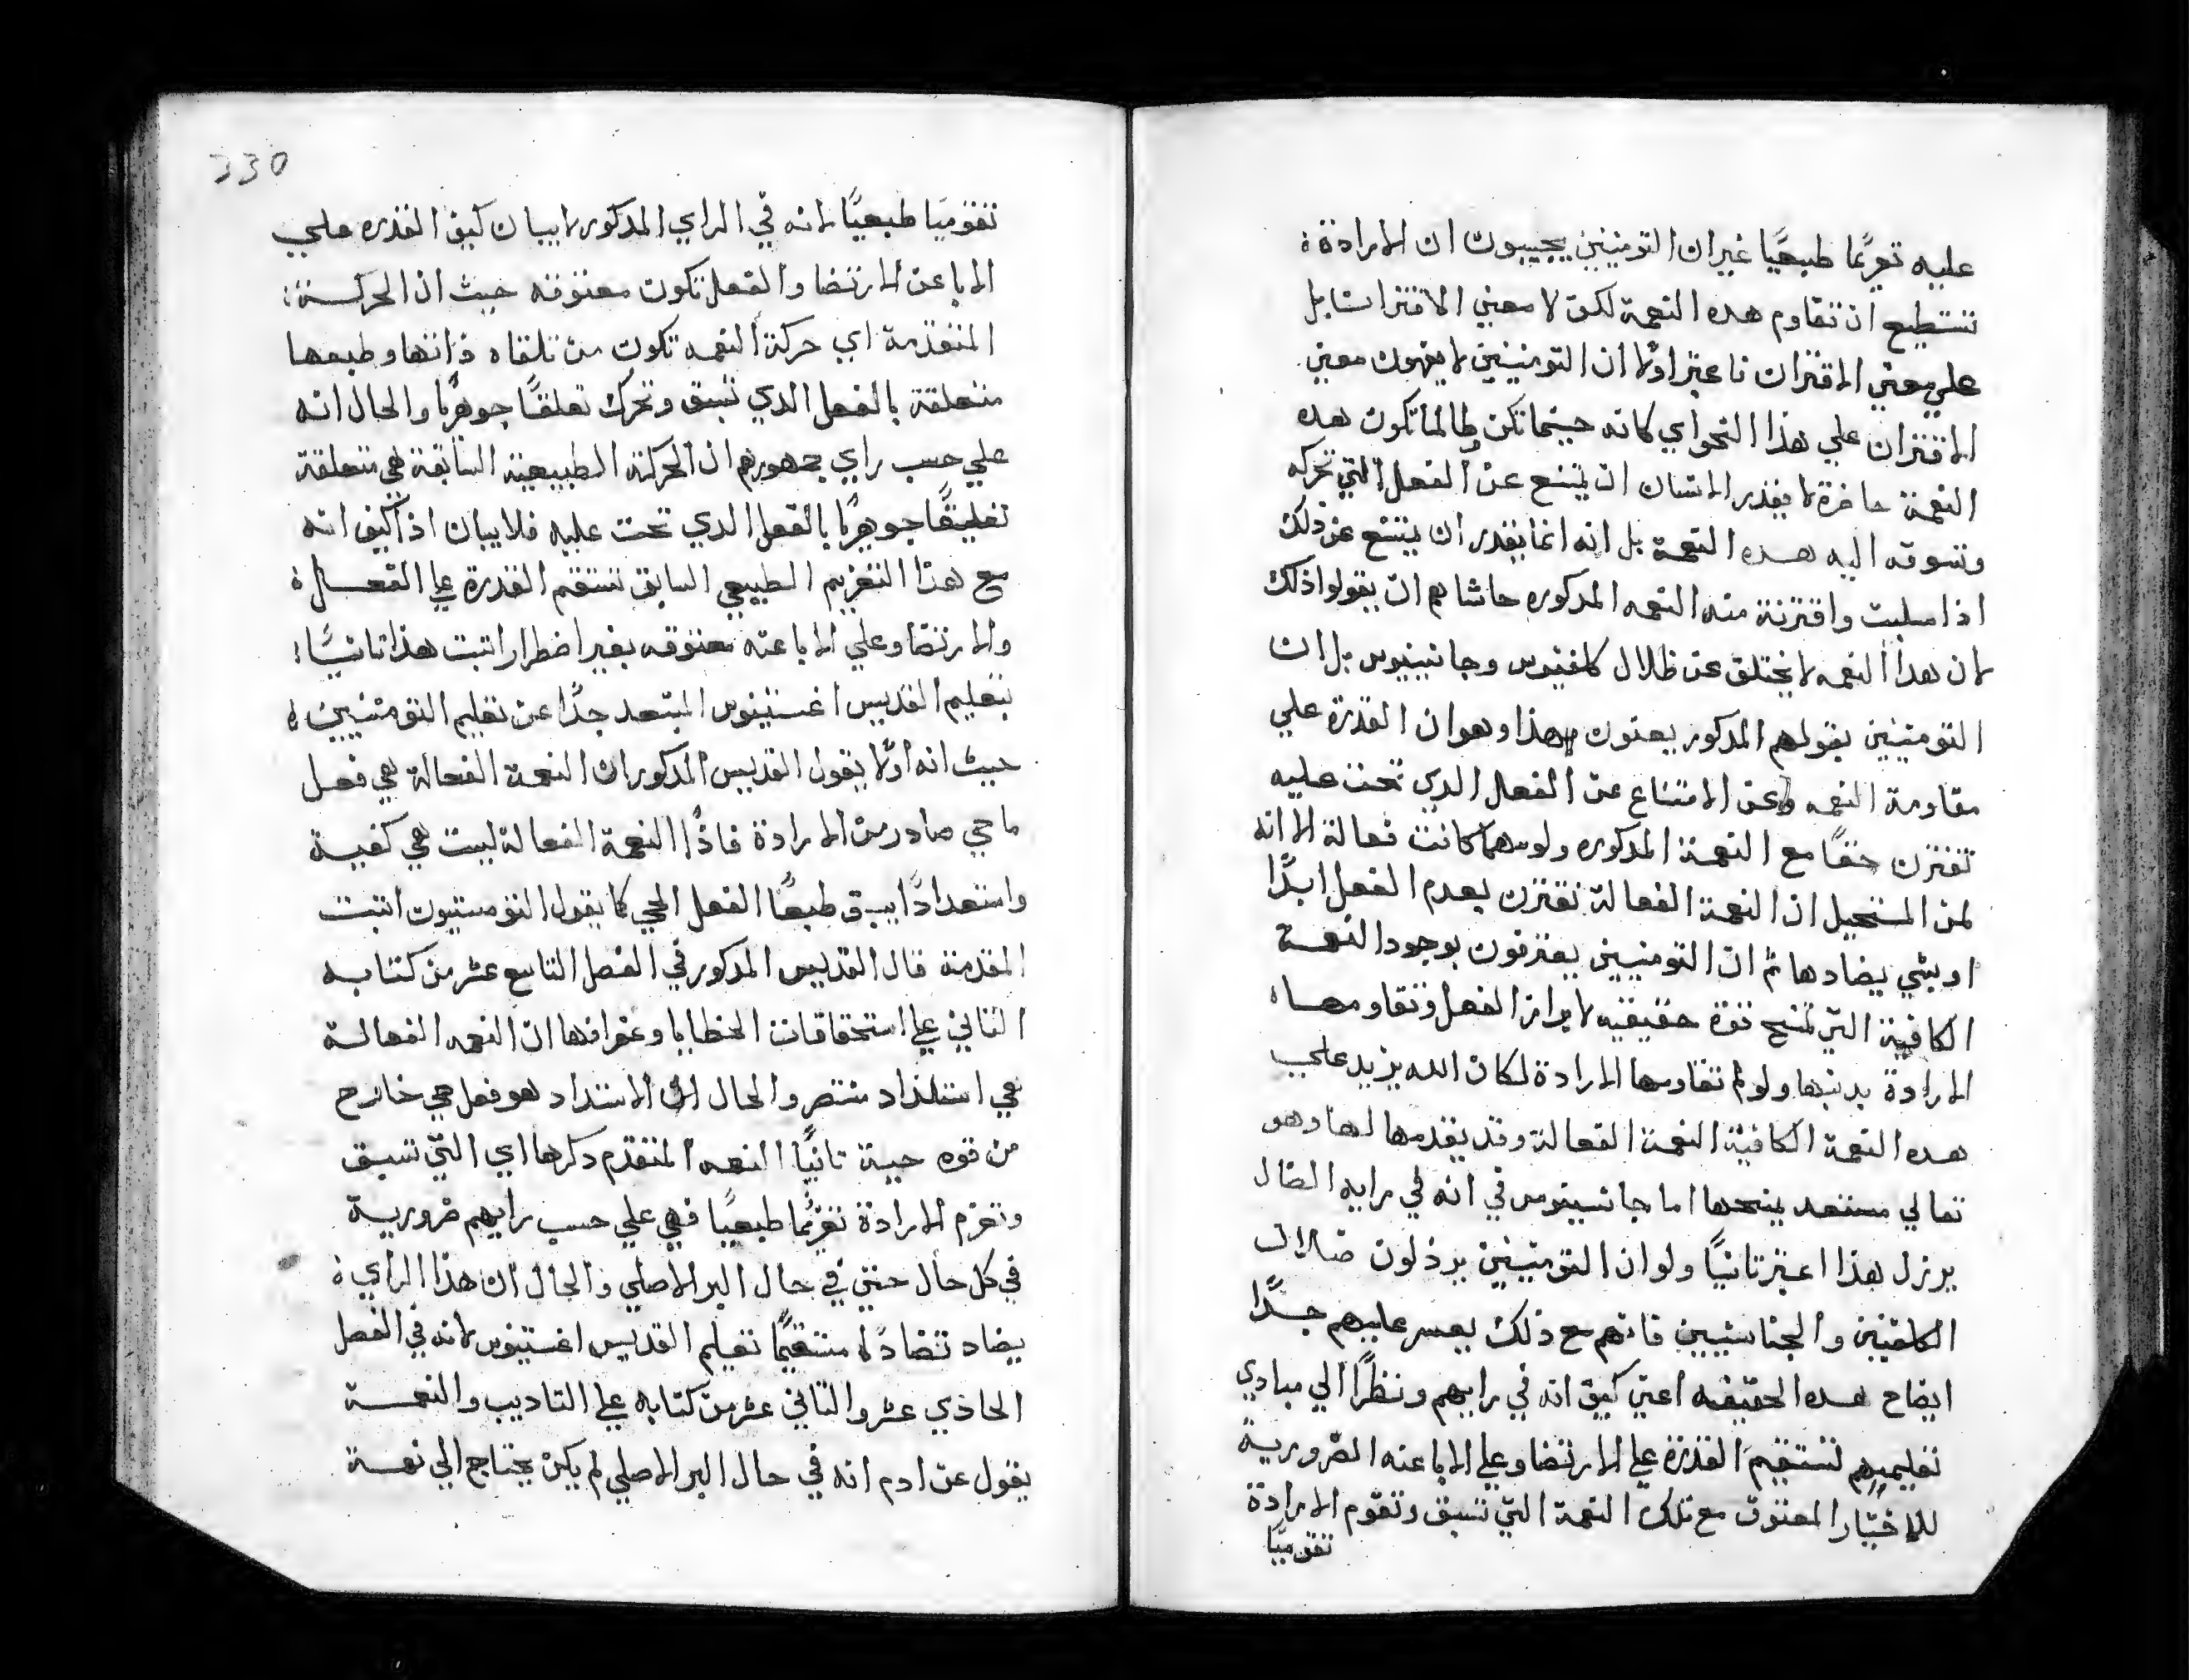 عليه تعزيمًا طبيعيًا غير ان التومنيين يجيبون ان الارادة
تستطيع ان تقاوم هده النعمة لكن لا معني الافتراق بل
علي معني الاقتران فاعتبر اولًا ان التومنيين لا يفهمون معني
الاقتران علي هذا النحو اي كانه حينما تكن طالما تكون هده
النعمة حاضرة لا يقدر الانسان ان يمتنع عن الفعل التي تحركه
وتسوقه اليه هده النعمة بل انه انما يقدر ان يمتنع عن ذلك
اذا سلبت وافترقة منه النعمه المدكوره حاشاهم ان يقولوا ذلك
لان هدا النعمه لا يختلق عن ظلال كلفنيوس وجانسنيوس بل ان
التومنيين بقولهم المدكور يعنون بهذا وهو ان القدرة علي
مقاومة النعمه وعن الامتناع عن الفعل الدي تحت عليه
تقترن حقًا مع النعمة المدكوره ولو مهما كانت فعالة الا انه
لمن المستحيل ان النعمة الفعالة تقترن بعدم الفعل ابدًا
او بشي يضادها ثم ان التومنيين يعترفون بوجود النعمة
الكافية التي تمنح قوة حقيقيه لابراز الفعل وتقاومها
الارادة بدنبها ولو لم تقاومها الارادة لكان الله يزيد علي
هده النعمة الكافية النعمة الفعالة وقد يقدمها لها وهو
تعالي مستعد يمنحها اما جانسنيوس في انه في رايه الضال
يرزل هذا اعتبر تانيًا ولو ان التومنيين يرذلون ضلالات
الكلفنيين والجناسنيين فانهم مع ذلك يعسر عليهم جدًا
ايضاح هده الحقيقه اعني كيف انه في رايهم ونظرًا الي مبادي
تعليمهم تستقيم القدرة علي الارتضا وعلي الابا عنه الضرورية
للاختيار المعتوق مع تلك النعمة التي تسبق وتقوم الارادة
تقوميًا
330
تقوميًا طبيعيًا لانه في الراي المدكور لا يبان كيف القدره علي
الابا عن الارتضا والفعل تكون معتوقه حيث ان الحركة
المتقدمة اي حركة النعمه تكون من تلقاه ذاتها وطبعها
متعلقة بالفعل الدي تسبق وتحرك تعلقًا جوهريًا والحال انه
علي حسب راي جمهورهم ان الحركة الطبيعية السابقة هي متعلقة
تعليقًا جوهريًا بالفعل الدي تحت عليه فلا يبان اذًا كيف انه
مع هدا التعزيم الطبيعي السابق تستقم القدرة علي الفعال
والارتضا وعلي الابا عنه معتوقه بغير اضطرار اتبت هذا تانيًا
بتعليم القديس اغستينوس المبتعد جدًا عن تعليم التومنيين
حيث انه اولًا يقول القديس المدكور ان النعمة الفعالة هي فعل
ما حي صادر من الارادة فاذًا النعمة الفعالة ليست هي كفيية
واستعدادًا يسبق طبعًا الفعل الحي كما يقول التومنيون اتبت
المقدمة قال القديس المدكور في الفصل التاسع عشر من كتابه
التاني علي استحقاقات الخطايا وغفرانها ان النعمه الفعالة
هي استلذاد منتصر والحال ان الاستلذاد هو فعل حي خارج
من قوه حيية تانيًا النعمه المتقدم دكرها اي التي تسبق
وتعزم الارادة تعزيمًا طبيعيًا فهي علي حسب رايهم ضرورية
في كل حال حتي في حال البر الاصلي والحال ان هذا الراي
يضاد تضادًا مستقيمًا تعليم القديس اغستينوس لانه في الفصل
الحادي عشر والتاني عشر من كتابه علي التاديب والنعمة
يقول عن ادم انه في حال البر الاصلي لم يكن يحتاج الي نعمة